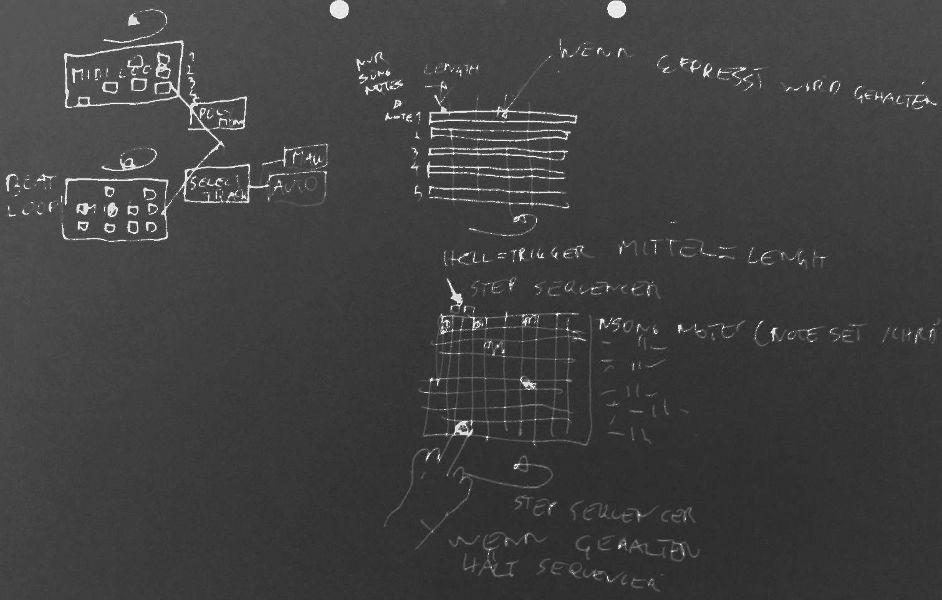 MIDI LOOP
1
2
3
BEAT
LOOP
SELECT
TRACK
MAN
AUTO
NUR
SONG
NOTES
LENGTH
NOTE 1
3
4
5
WENN GEPRESST WIRD GEHALTEN
HELL=TRIGGER MITTEL=LENGH
STEP SEQUENCER
NSONG NOTES (NOTE SET /CHRO
STEP SEQUENCER
WENN GEHALTEN
HÄLT SEQUENCER